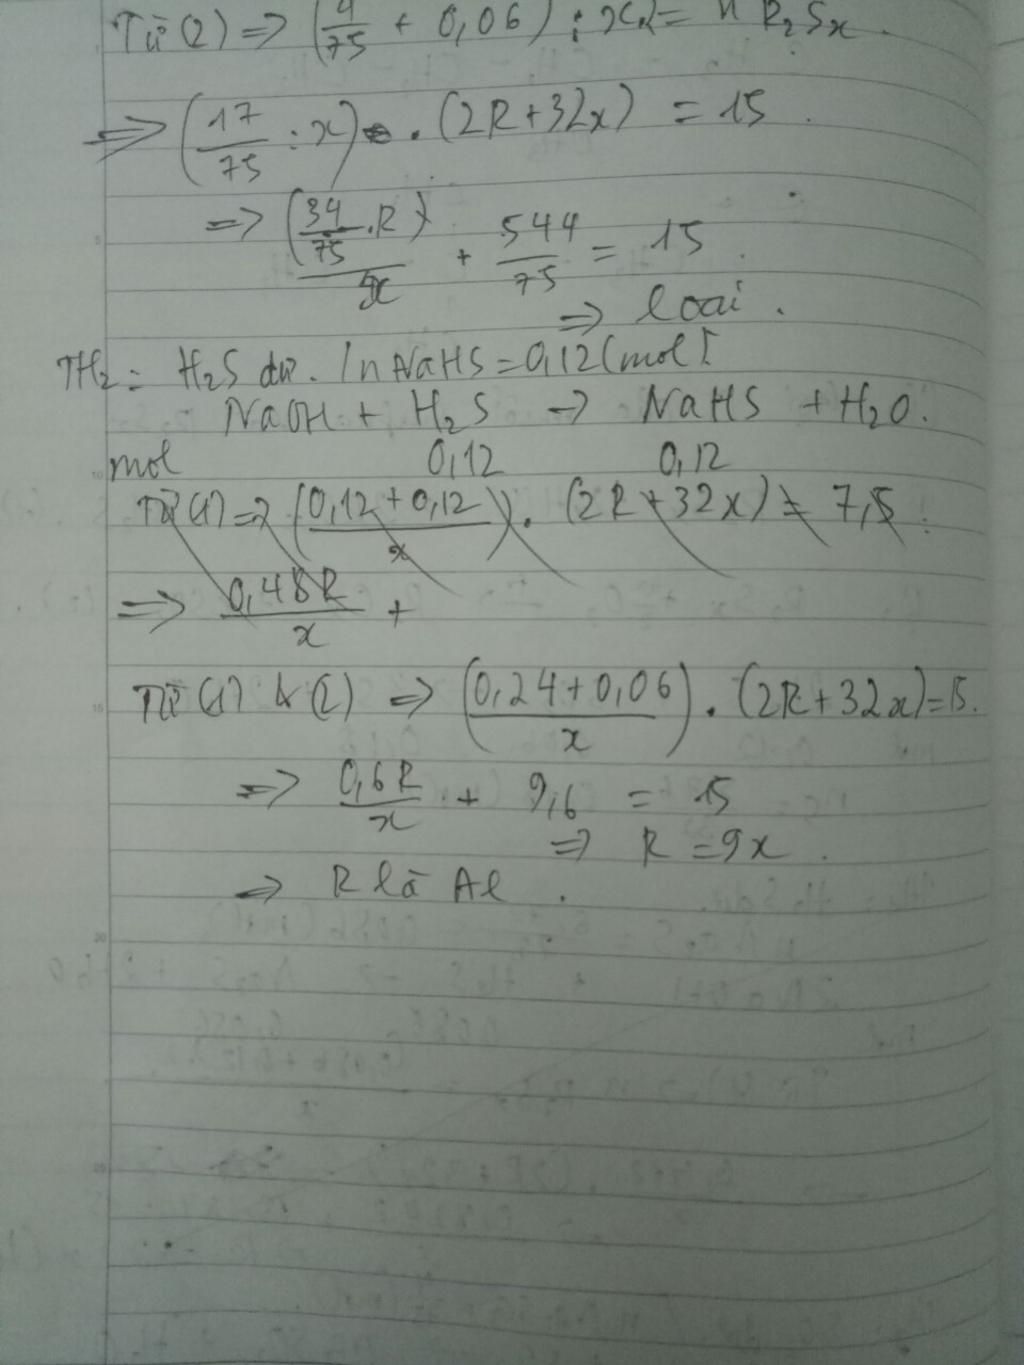 Từ (2) => (4/75 + 0,06) : x = n R₂Sₓ.
=> (17/75 : x) . (2R + 32x) = 15.
=> (34/75 . R)/x + 544/75 = 15.
=> loại.
TH₂: H₂S dư. / n NaHS = 0,12 (mol)
NaOH + H₂S -> NaHS + H₂O.
mol 0,12 0,12
Từ (1) => (0,12 + 0,12 / x) . (2R + 32x) = 7,5.
=> 0,48R/x +
Từ (1) & (2) => (0,24 + 0,06 / x) . (2R + 32x) = 15.
=> 0,6R/x + 9,6 = 15
=> R = 9x.
=> R là Al.